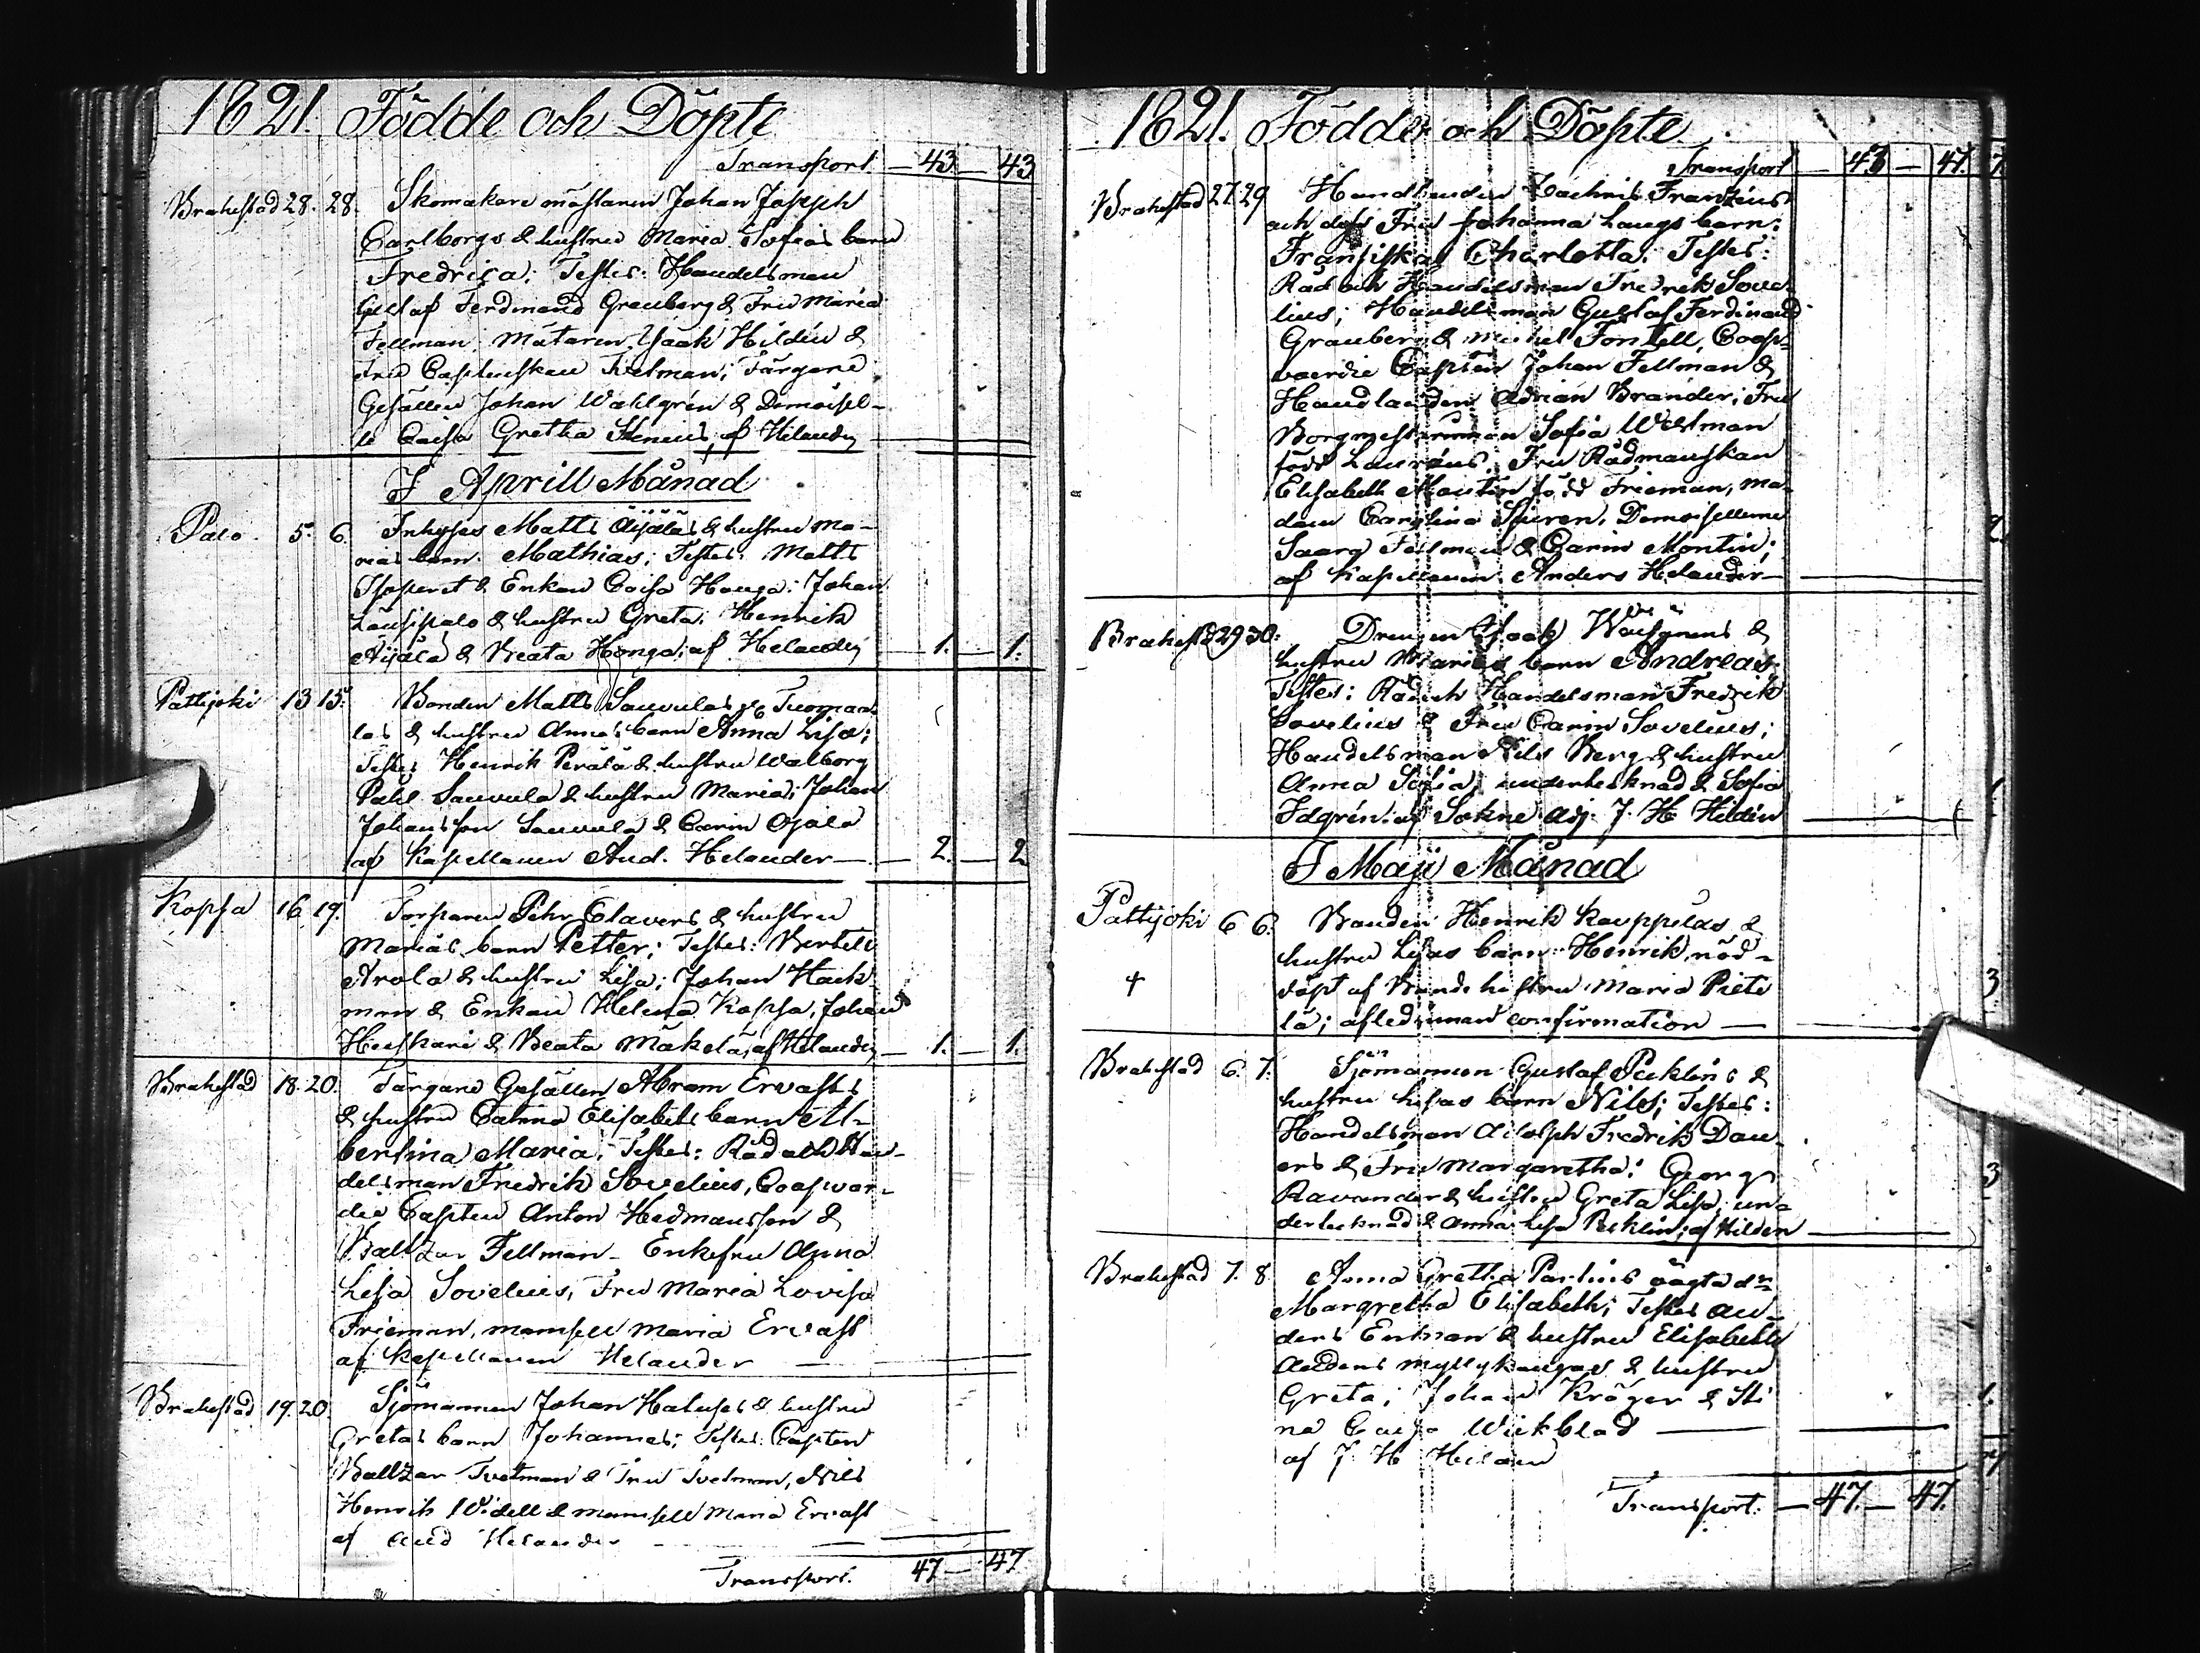 1821. Födde och Döpte
Transport — 43 — 43
Brahestad 28. 28. Skomakare mästaren Johan Joseph
Carlborgs & hustru Maria Sofias barn
Fredrica; Testes: Handelsman
Gustaf Ferdinand Granberg & Fru Maria
Fellman; Mätaren Isaak Hildén &
Fru Captenskan Tvetman; Färgare
Gesällen Johan Wahlgrén & Demoisel-
le Caisa Gretha Stenius, af Helander
I Aprill Månad
Palo. 5. 6. Inhyses Matts Äijäläs & hustru Ma-
rias barn Mathias; Testes: Matts
& Enkan Caisa Honga; Johan
Länsipalo & hustru Greta; Henrik
Äijälä & Beata Honga; af Helander — 1. — 1.
Pattijoki 13 15. Bonden Matts Sauvulas Tuomaa
las & hustru Annas barn Anna Lisa;
Testes Henrik Perälä & hustru Walborg
Påhl Sauvula & hustru Maria; Johan
Johansson Sauvula & Carin Ojala
af Kapellanen And. Helander — 2. — 2
Kopsa 16. 19. Torparen Pehr Elavers & hustru
Marias barn Petter; Testes: Bertell
Arola & hustru Lisa; Johan Hack
man & Enkan Helena Kopsa, Johan
& Beata Mäkelä; af Helander — 1. — 1.
Brahestad 18. 20. Färgare Gesällen Abram Ervasts
& hustru Catrina Elisabets barn Al-
bertina Maria; Testes: Råd och Han-
delsman Fredrik Sovelius, Coopvar-
die Capten Anton Hedmansson &
Baltzar Fellman — Enkefru Anna
Lisa Sovelius, Fru Maria Lovisa
Frieman, mamsell Maria Ervast
af Kapellanen Helander —
Brahestad 19. 20. Sjömannen Johan & hustru
Gretas barn Johannes; Testes: Capten
Baltzar Tvetman & Fru Tvetman, Nils
Henrik Widell & mamsell Maria Ervast
af And Helander —
Transport. 47 — 47
1821. Födde och Döpte
Transport — 43 — 47. 7.
Brahestad 27. 29 Handlanden Zachris Franzéns
och dess Fru Johanna Langs barn:
Fransiska Charlotta; Testes:
Råd och Handelsman Fredrik Sove-
lius; Handelsman Gustaf Ferdinand
Granberg & Michel Forsell, Coop-
vaerdie Capten Johan Fellman &
Handlanden Adrian Brander; Fru
Borgmestarinnan Sofia Westman
född Lauréus, Fru Rådmanskan
Elisabeth Montin född Frieman, Ma-
dam Carolina Demoisellerna
Saara Fellman & Carin Montin;
af Kapellanen Anders Helander —
Brahestad 29 30. Drengen Isaak &
hustru Marias barn Andreas;
Testes: Råd och Handelsman Fredrik
Sovelius & Fru Carin Sovelius;
Handelsman Nils Berg & hustru
Anna Sofia; undertecknad & Sofia
Idgrén; af Sokne Adj. J. H. Hildén
I Maji Månad
Pattijoki 6 6. Bonden Henrik Kauppilas &
hustru Lisas barn Henrik, nöd-
† döpt af Bonde hustru Maria Pieti
lä; afled innan confirmation —
Brahestad 6. 7. Sjömannen Gustaf Pecklins &
hustru Lisas barn Nils; Testes:
Handelsman Adolph Fredrik Dan-
ers & Fru Margaretha; Georg
Ravander & hustru Greta Lisa; un-
dertecknad & Anna Lisa Pecklin; af Hildén
Brahestad 7. 8. Anna Gretha oägta dr
Margretha Elisabeth; Testes An-
ders Enman & hustru Elisabeth
Anders Myllykangas & hustru
Greta; Johan Kröger & Sti
na Caisa Wickblad —
af J H Hildén
Transport. — 47. — 47.